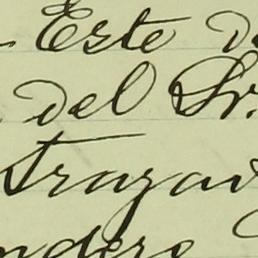 Este d
del Sr.
Trazad
ndero